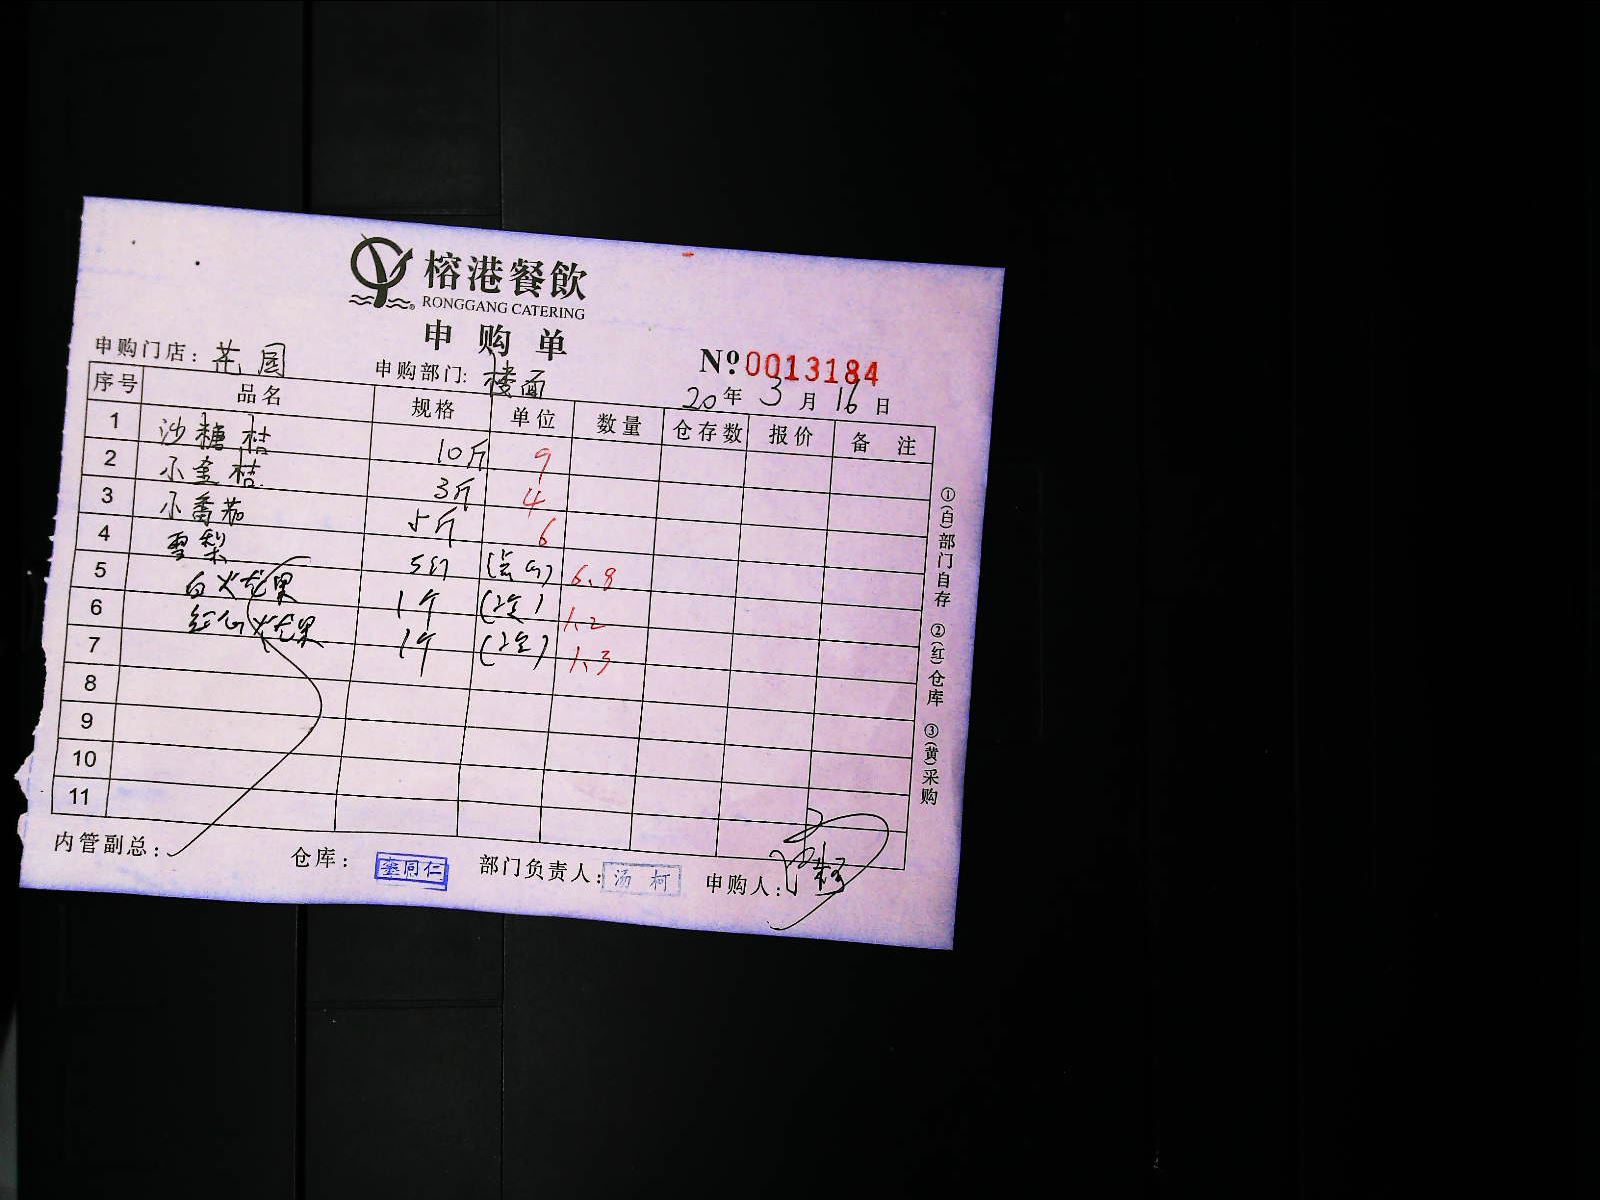 榕港餐飲
RONGGANG CATERING
申购单
申购门店：花园 申购部门：楼面 Nº 0013184
20年3月16日
序号 品名 规格 单位 数量 仓存数 报价 备注
1 沙糖桔 10斤 9
2 小金桔 3斤 4
3 小番茄 5斤 6
4 雪梨 5个 6.8
5 白火龙果 1个 1.2
6 红心火龙果 1个 1.3
7
8
9
10
11
①(白)部门自存 ②(红)仓库 ③(黄)采购
内管副总： 仓库：李同仁 部门负责人：汤柯 申购人：